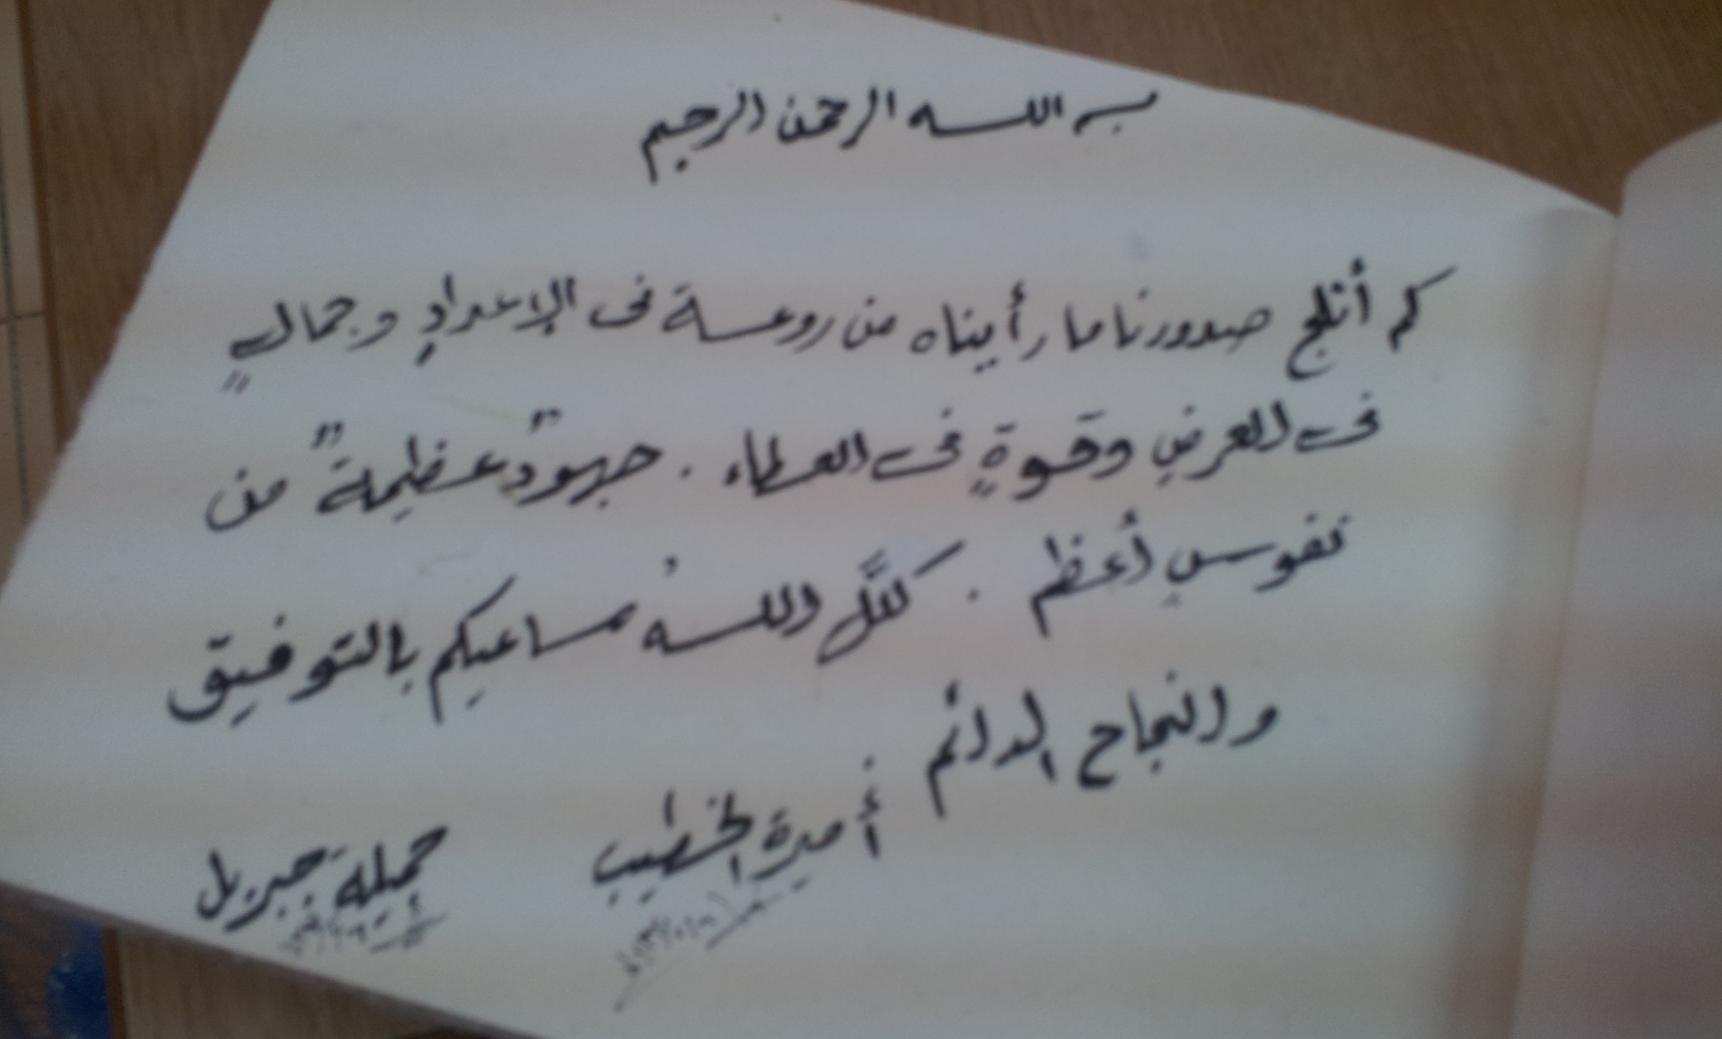 بسم الله الرحمن الرحيم
كم أثلج صدورنا ما رأيناه من روعة فى الإعدادِ وجمالٍ
فى العرضِ وقوةٍ فى العطاء . جهودٌ عظيمةٌ من
نفوسٍ أعظم . كلَّل اللهُ مساعيكم بالتوفيق
والنجاح الدائم
أميرة الخطيب
جميلة جبريل